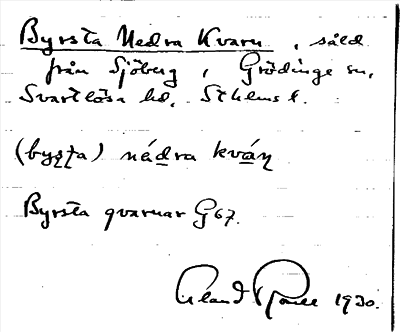 Byrsta Nedra Kvarn, såld
från Sjöberg, Grödinge sn,
Svartlösa hd, Sthlms l.
(byṣṭa) nádra kváṇ
Byrsta qvarnar G67.
1930.